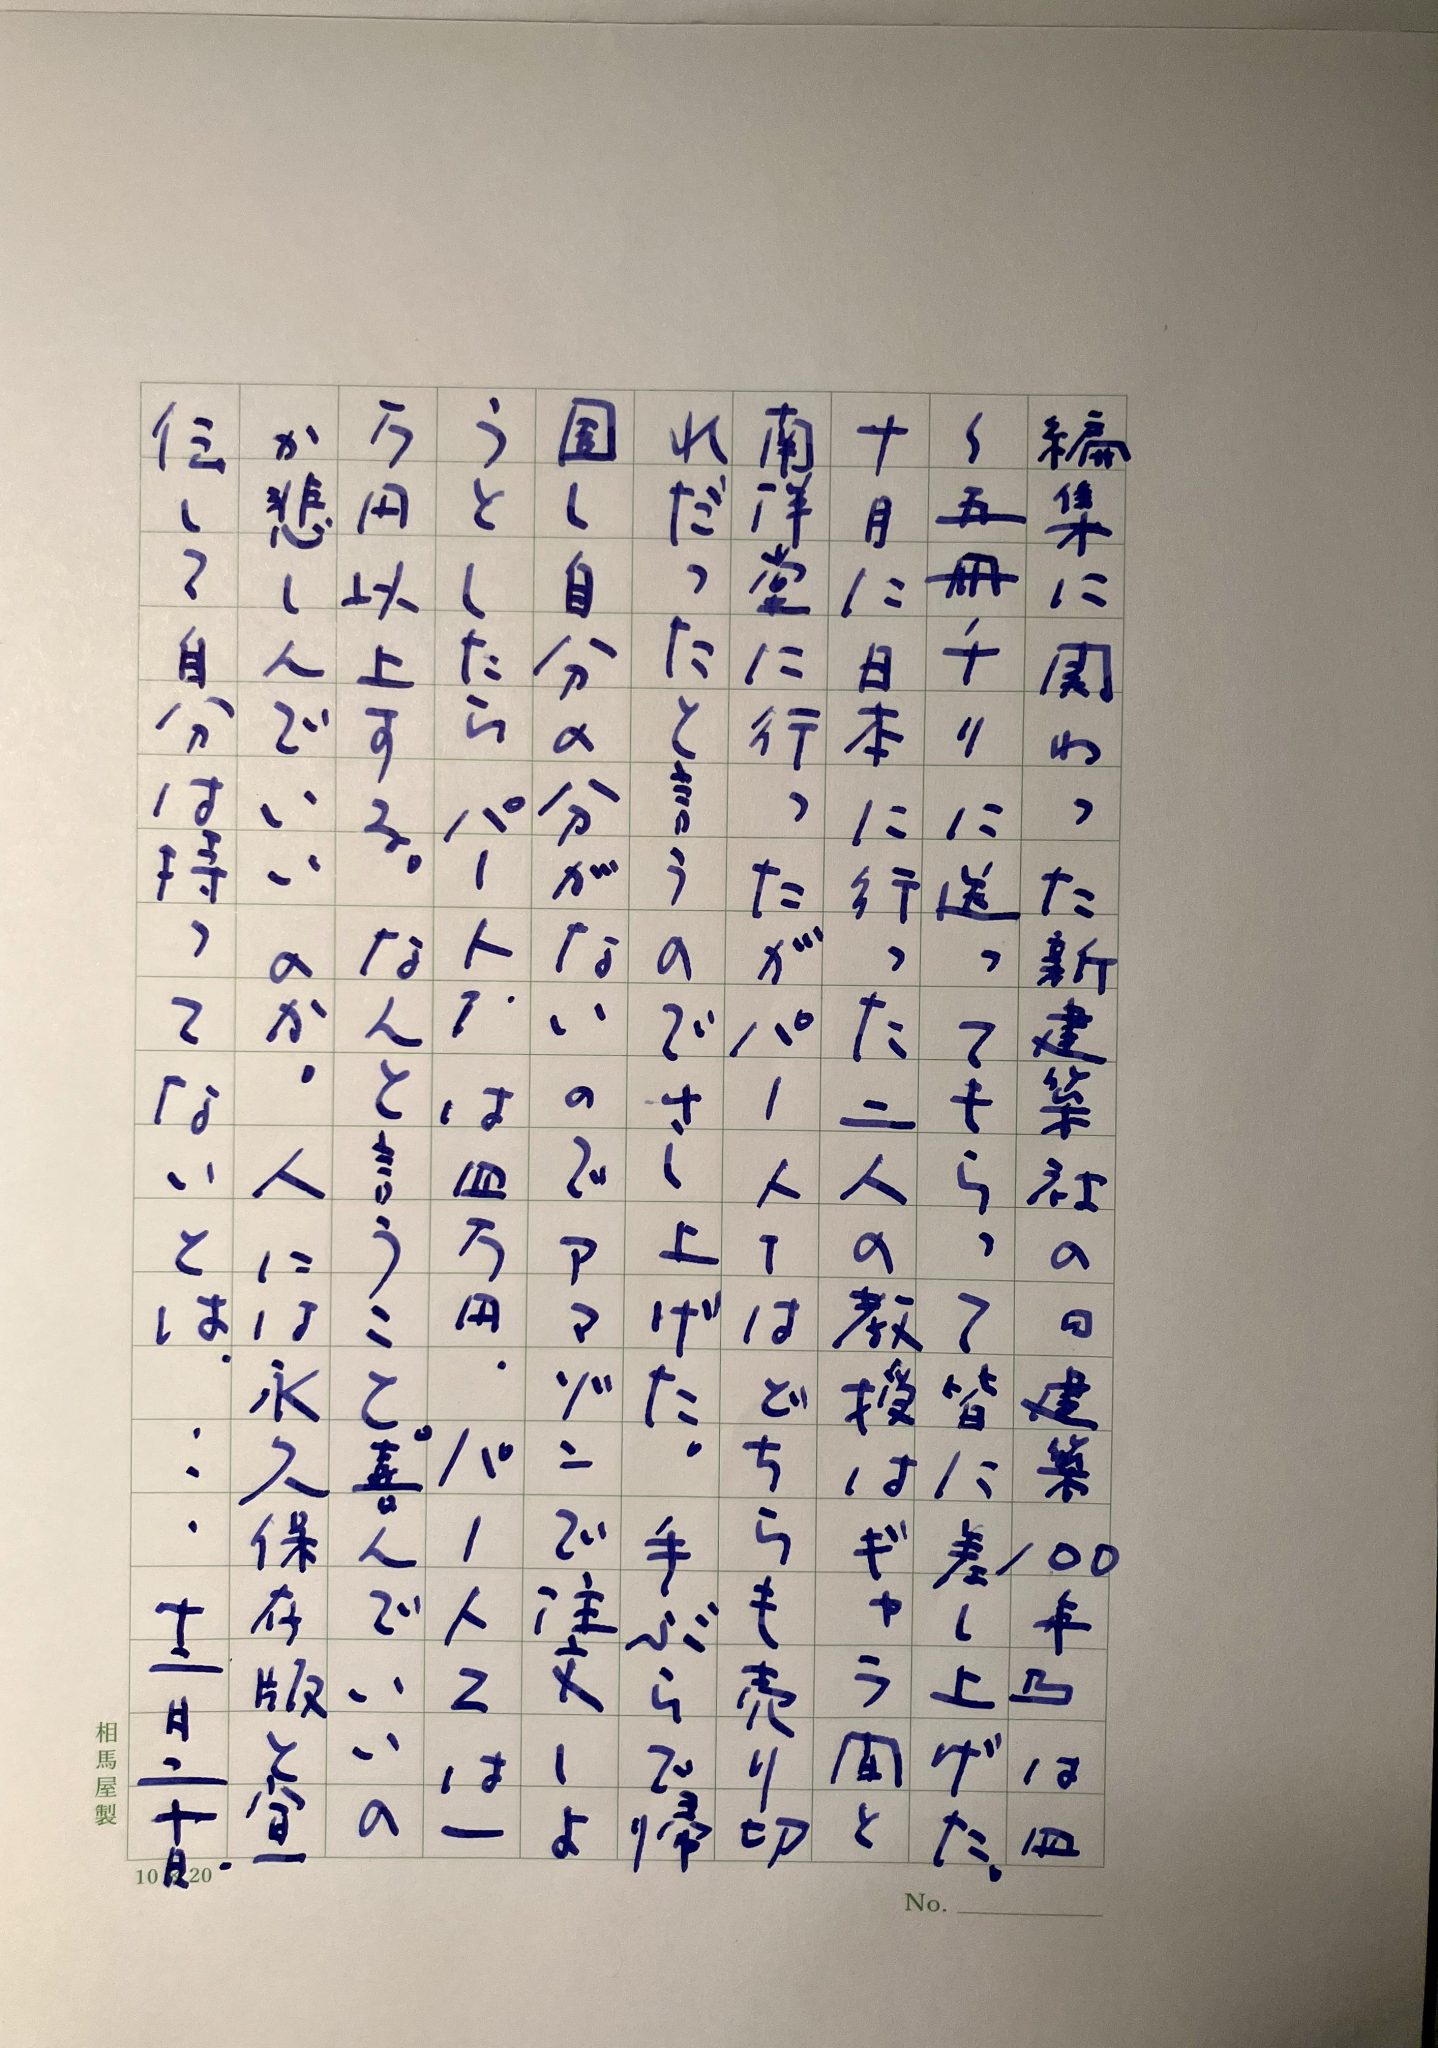 編集に関わった新建築社の『建築100年』は四
〜五冊チリに送ってもらって皆に差し上げた。
十月に日本に行った二人の教授はギャラ間と
南洋堂に行ったがパート1はどちらも売り切
れだったと言うのでさし上げた。手ぶらで帰
国し自分の分がないのでアマゾンで注文しよ
うとしたらパート1は四万円、パート2は一
万円以上する。なんと言うこと。喜んでいいの
か悲しんでいいのか。人には永久保存版と宣
伝して自分は持ってないとは……十二月二十日.
相馬屋製
10×20
No.